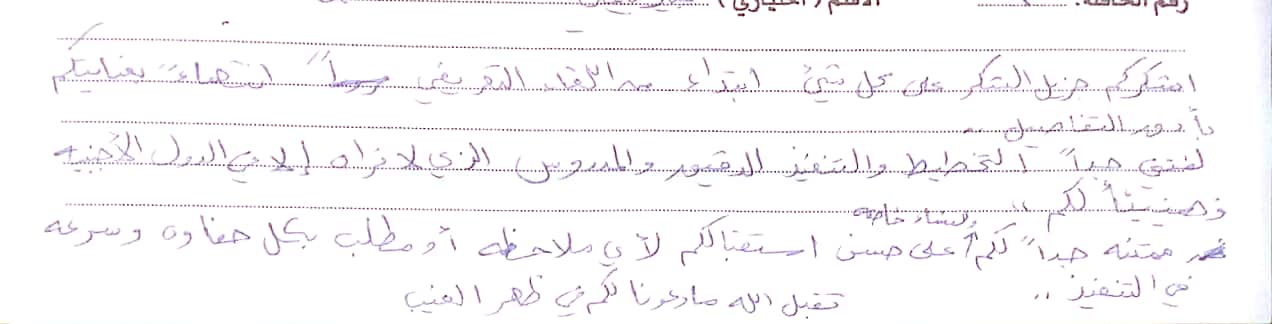 رقم الحافلة: الاسم (اختياري)
اشكركم جزيل الشكر على كل شيئ ابتداء من اللقاء التعريفي انتهاءً بعنايتكم
بأدق التفاصيل ..
لفتني جداً التخطيط والتنفيذ الدقيق والمدروس الذي لا نراه إلا في الدول الأجنبيه
فهنيئاً لكم ..
ممتنه جداً لكم ولنشاء خاصه على حسن استقبالكم لأي ملاحظه أو مطلب بكل حفاوه وسرعه
في التنفيذ ..
تقبل الله مادعونا لكم في ظهر الغيب